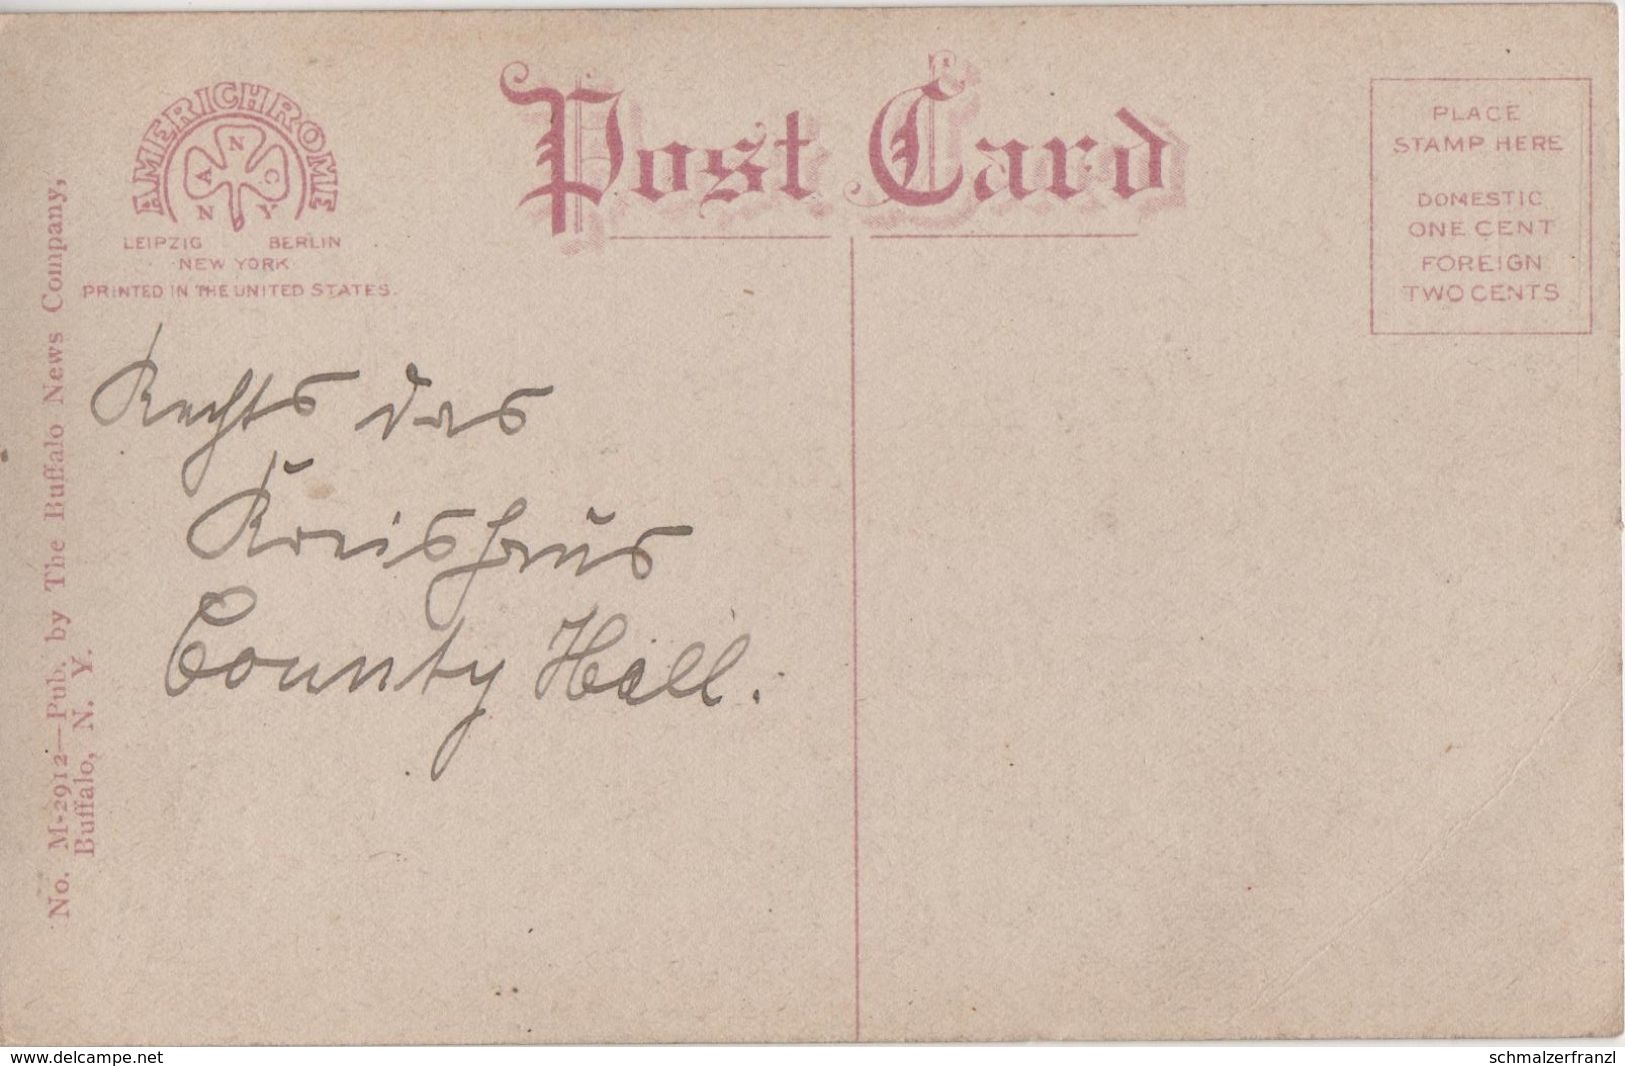 AMERICHROME
A N C
N Y
LEIPZIG BERLIN
NEW YORK
PRINTED IN THE UNITED STATES.
Post Card
PLACE
STAMP HERE
DOMESTIC
ONE CENT
FOREIGN
TWO CENTS
No. M-2912—Pub. by The Buffalo News Company,
Buffalo, N. Y.
Rechts das
Kreishaus
County Hall.
www.delcampe.net
schmalzerfranzl